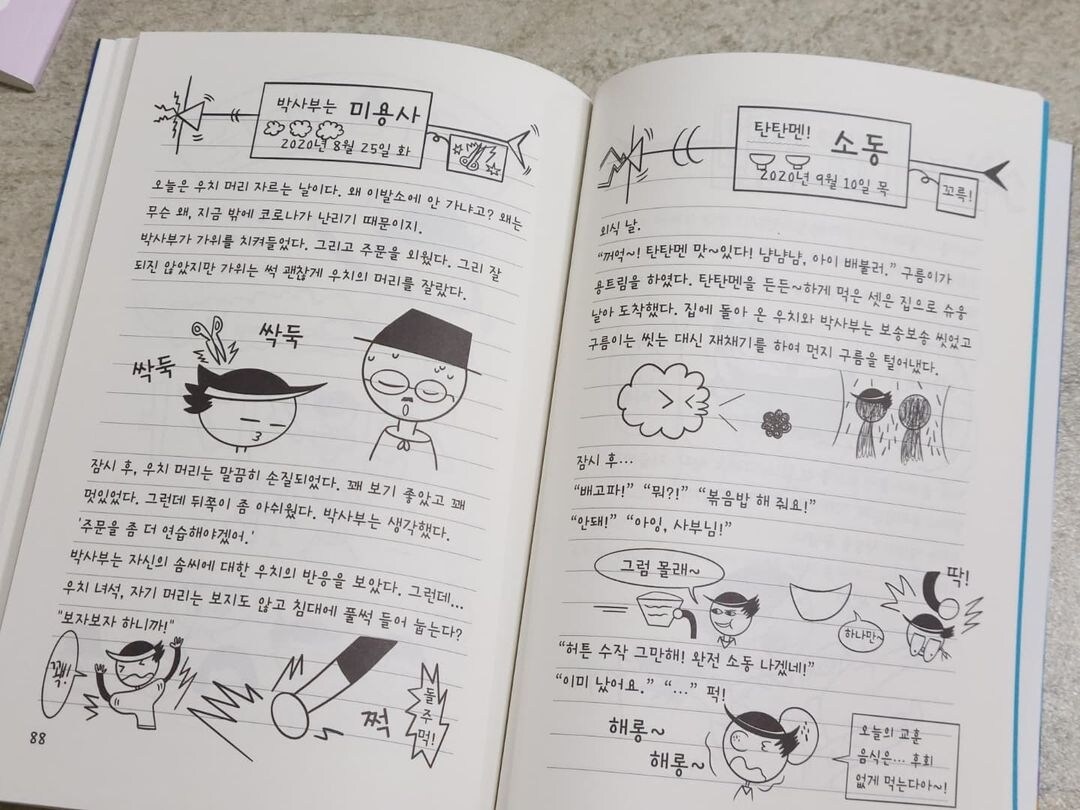 박사부는 미용사
2020년 8월 25일 화
오늘은 우치 머리 자르는 날이다. 왜 이발소에 안 가냐고? 왜는
무슨 왜, 지금 밖에 코로나가 난리기 때문이지.
박사부가 가위를 치켜들었다. 그리고 주문을 외웠다. 그리 잘
되진 않았지만 가위는 썩 괜찮게 우치의 머리를 잘랐다.
싹둑
싹둑
잠시 후, 우치 머리는 말끔히 손질되었다. 꽤 보기 좋았고 꽤
멋있었다. 그런데 뒤쪽이 좀 아쉬웠다. 박사부는 생각했다.
'주문을 좀 더 연습해야겠어.'
박사부는 자신의 솜씨에 대한 우치의 반응을 보았다. 그런데...
우치 녀석, 자기 머리는 보지도 않고 침대에 풀썩 들어 눕는다?
"보자보자 하니까!"
꽥!
쩍
돌
주
먹!
88
탄탄멘! 소동
2020년 9월 10일 목
꼬륵!
외식 날.
"꺼억~! 탄탄멘 맛~있다! 냠냠냠, 아이 배불러." 구름이가
용트림을 하였다. 탄탄멘을 든든~하게 먹은 셋은 집으로 슈웅
날아 도착했다. 집에 돌아 온 우치와 박사부는 보송보송 씻었고
구름이는 씻는 대신 재채기를 하여 먼지 구름을 털어냈다.
잠시 후...
"배고파!" "뭐?!" "볶음밥 해 줘요!"
"안돼!" "아잉, 사부님!"
그럼 몰래~
하나만~
딱!
"허튼 수작 그만해! 완전 소동 나겠네!"
"이미 났어요." "..." 퍽!
해롱~
해롱~
오늘의 교훈
음식은... 후회
없게 먹는다아~!